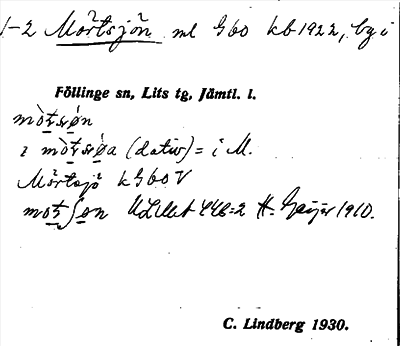 1-2 Mörtsjön ml G60 kb 1922, by i
Föllinge sn, Lits tg, Jämtl. l.
mòtsøn
i mòtsøa (dativ) = i M.
Mörtsjö k G60V
motʃøn H. Geijer 1910.
C. Lindberg 1930.